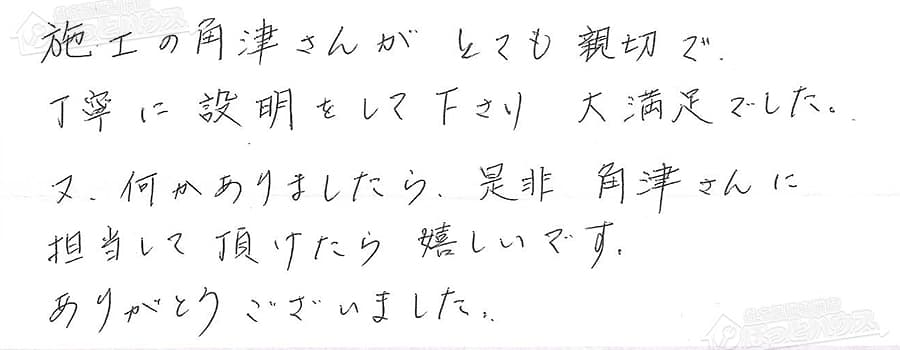 施工の角津さんが とても 親切で、
丁寧に 設明をして下さり 大満足でした。
又、何かありましたら、是非 角津さんに
担当して 頂けたら 嬉しいです。
ありがとう ございました。